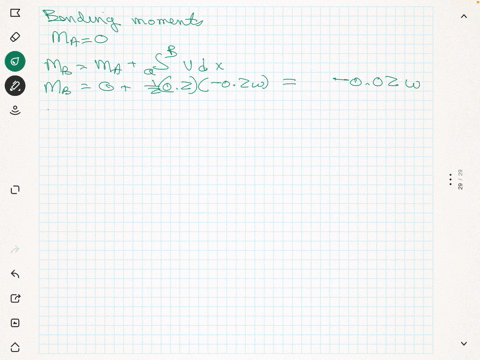 Bending moments
MA=0
MB = MA + a∫B V dx
MB = 0 + ½(0.2)(-0.2w) = -0.02w
29 / 29